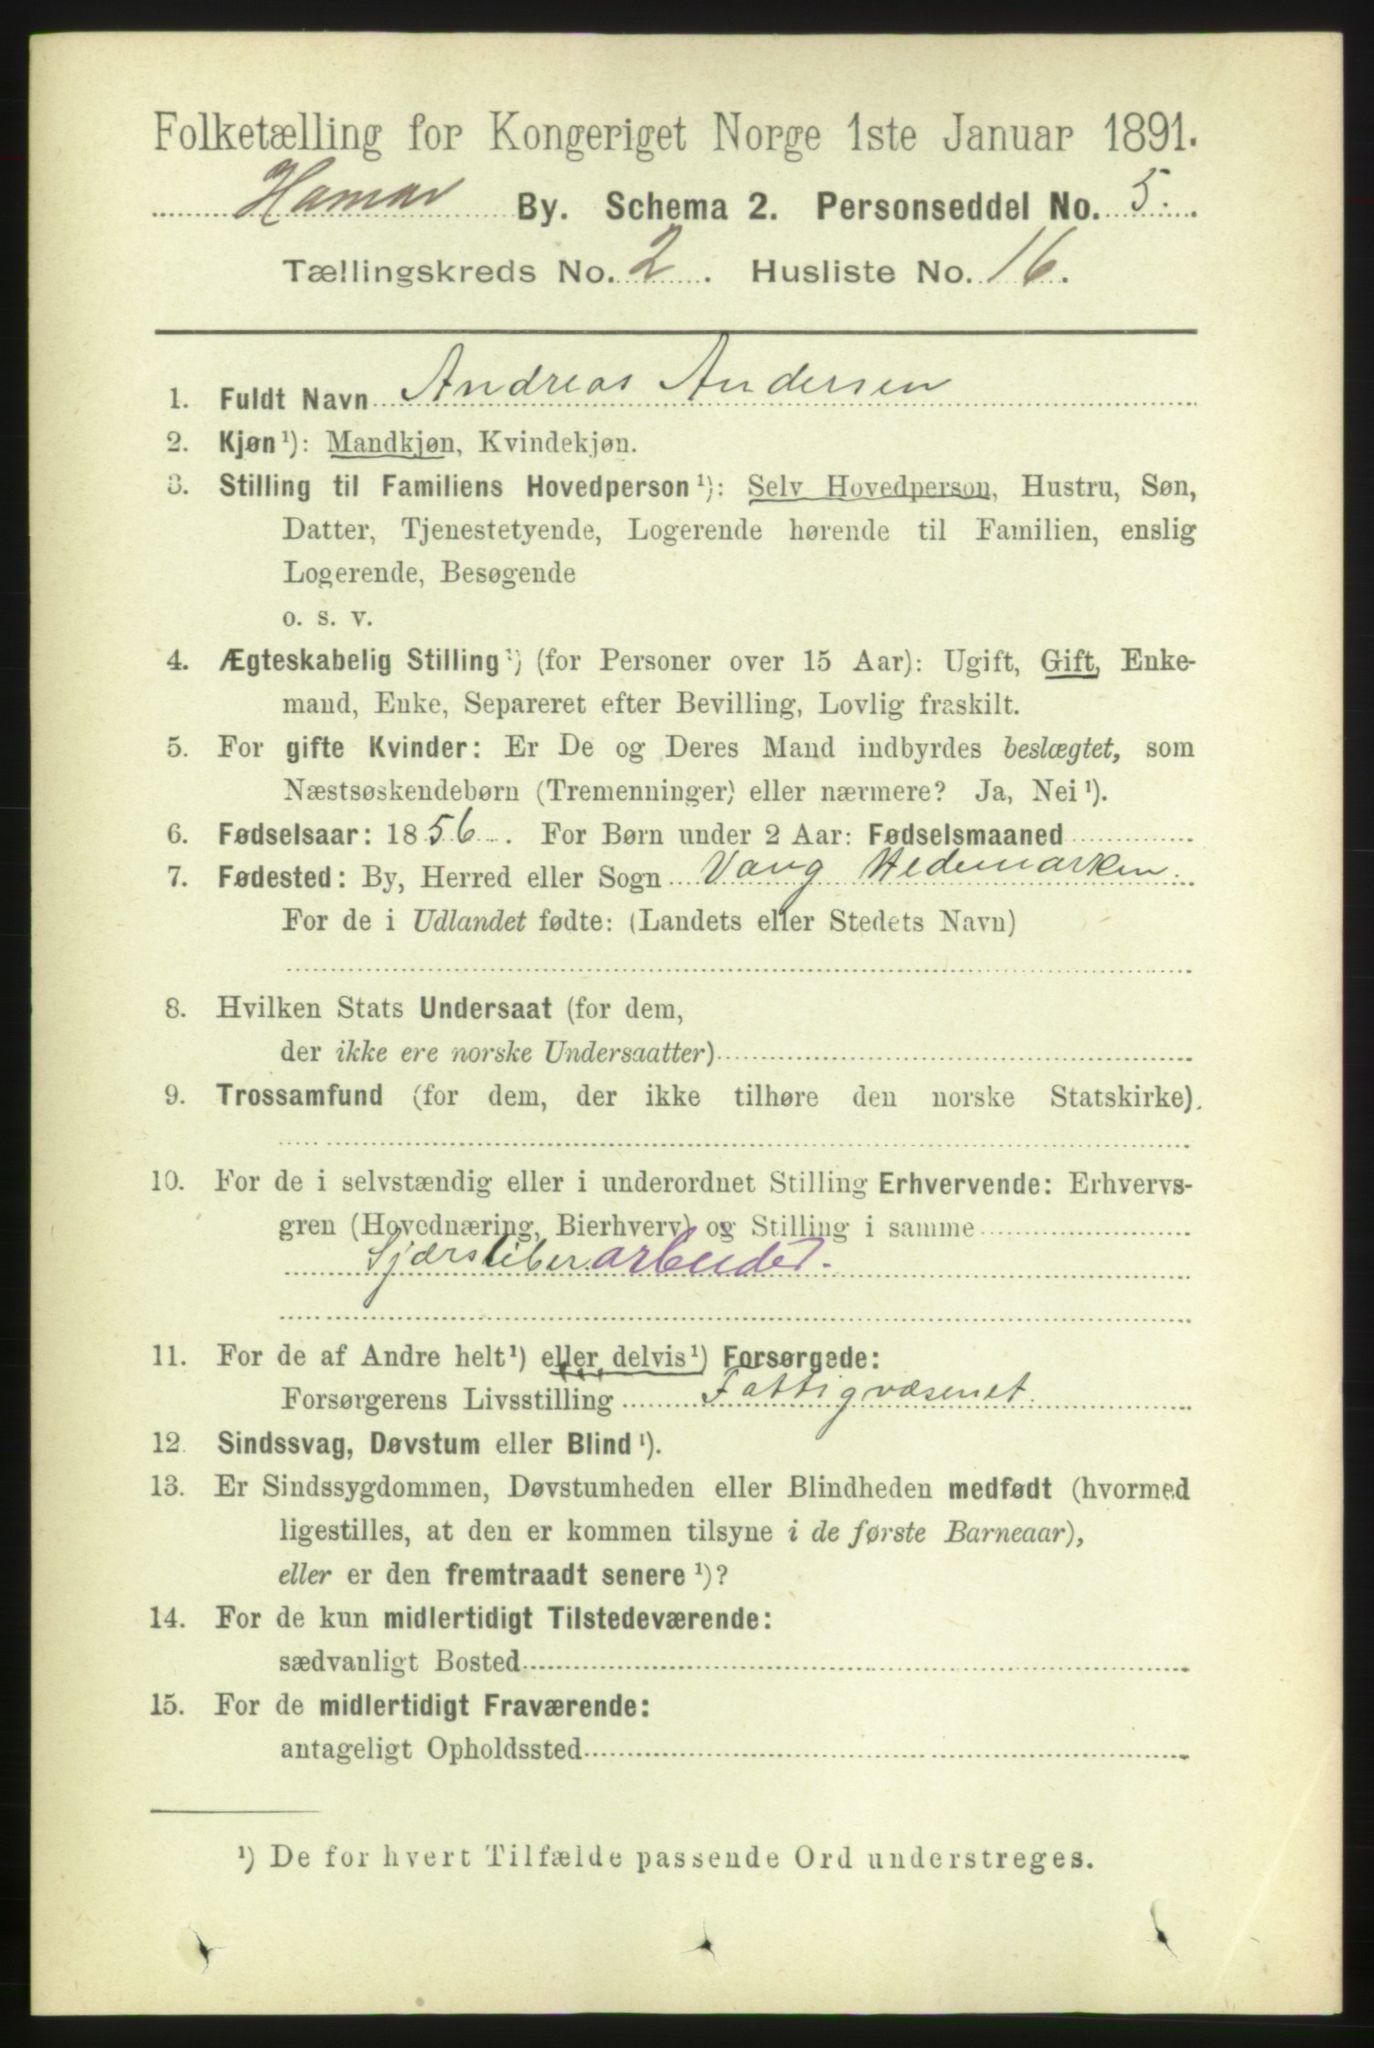 Folketælling for Kongeriget Norge 1ste Januar 1891.
Hamar By. Schema 2. Personseddel No. 5.
Tællingskreds No. 2. Husliste No. 16.
1. Fuldt Navn Andreas Andersen
2. Kjøn¹): Mandkjøn, Kvindekjøn.
3. Stilling til Familiens Hovedperson¹): Selv Hovedperson, Hustru, Søn,
Datter, Tjenestetyende, Logerende hørende til Familien, enslig
Logerende, Besøgende
o. s. v.
4. Ægteskabelig Stilling¹) (for Personer over 15 Aar): Ugift, Gift, Enke-
mand, Enke, Separeret efter Bevilling, Lovlig fraskilt.
5. For gifte Kvinder: Er De og Deres Mand indbyrdes beslægtet, som
Næstsøskendebørn (Tremenninger) eller nærmere? Ja, Nei¹).
6. Fødselsaar: 1856. For Børn under 2 Aar: Fødselsmaaned
7. Fødested: By, Herred eller Sogn Vang Hedemarken.
For de i Udlandet fødte: (Landets eller Stedets Navn)
8. Hvilken Stats Undersaat (for dem,
der ikke ere norske Undersaatter)
9. Trossamfund (for dem, der ikke tilhøre den norske Statskirke).
10. For de i selvstændig eller i underordnet Stilling Erhvervende: Erhvervs-
gren (Hovednæring, Bierhverv) og Stilling i samme
arbeider.
11. For de af Andre helt¹) eller delvis¹) Forsørgede:
Forsørgerens Livsstilling Fattigvæsenet.
12. Sindssvag, Døvstum eller Blind¹).
13. Er Sindssygdommen, Døvstumheden eller Blindheden medfødt (hvormed
ligestilles, at den er kommen tilsyne i de første Barneaar),
eller er den fremtraadt senere¹)?
14. For de kun midlertidigt Tilstedeværende:
sædvanligt Bosted
15. For de midlertidigt Fraværende:
antageligt Opholdssted
¹) De for hvert Tilfælde passende Ord understreges.